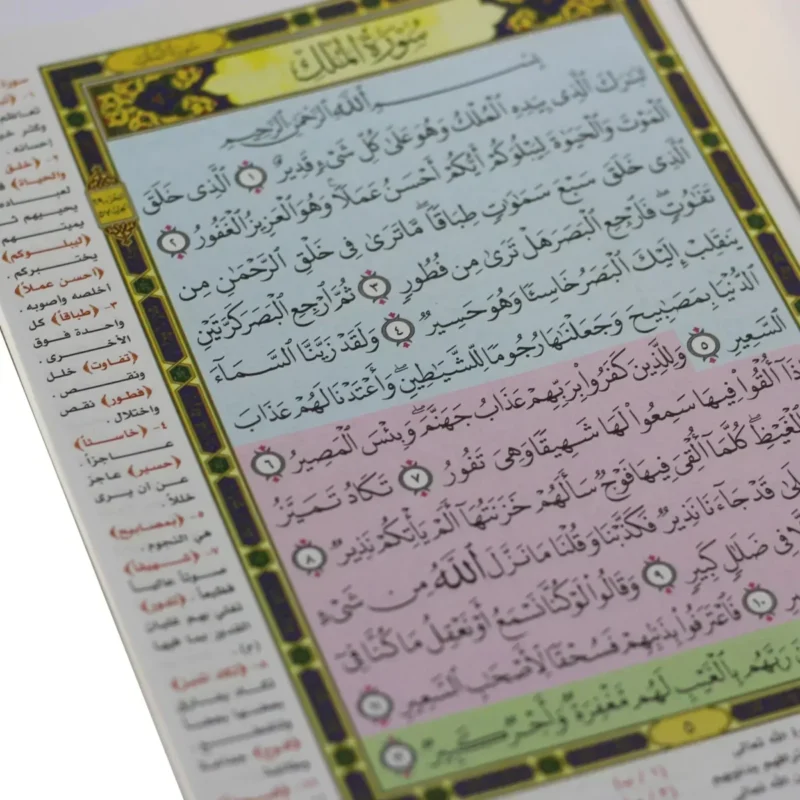 سُورَةُ الْمُلْكِ
بِسْمِ اللَّهِ الرَّحْمَٰنِ الرَّحِيمِ
تَبَٰرَكَ ٱلَّذِى بِيَدِهِ ٱلْمُلْكُ وَهُوَ عَلَىٰ كُلِّ شَىْءٍ قَدِيرٌ ١ ٱلَّذِى خَلَقَ
ٱلْمَوْتَ وَٱلْحَيَوٰةَ لِيَبْلُوَكُمْ أَيُّكُمْ أَحْسَنُ عَمَلًا ۚ وَهُوَ ٱلْعَزِيزُ ٱلْغَفُورُ ٢
ٱلَّذِى خَلَقَ سَبْعَ سَمَٰوَٰتٍ طِبَاقًا ۖ مَّا تَرَىٰ فِى خَلْقِ ٱلرَّحْمَٰنِ مِن
تَفَٰوُتٍ ۖ فَٱرْجِعِ ٱلْبَصَرَ هَلْ تَرَىٰ مِن فُطُورٍ ٣ ثُمَّ ٱرْجِعِ ٱلْبَصَرَ كَرَّتَيْنِ
يَنقَلِبْ إِلَيْكَ ٱلْبَصَرُ خَاسِئًا وَهُوَ حَسِيرٌ ٤ وَلَقَدْ زَيَّنَّا ٱلسَّمَآءَ
ٱلدُّنْيَا بِمَصَٰبِيحَ وَجَعَلْنَٰهَا رُجُومًا لِّلشَّيَٰطِينِ ۖ وَأَعْتَدْنَا لَهُمْ عَذَابَ
ٱلسَّعِيرِ ٥ وَلِلَّذِينَ كَفَرُوا۟ بِرَبِّهِمْ عَذَابُ جَهَنَّمَ ۖ وَبِئْسَ ٱلْمَصِيرُ ٦
أُلْقُوا۟ فِيهَا سَمِعُوا۟ لَهَا شَهِيقًا وَهِىَ تَفُورُ ٧ تَكَادُ تَمَيَّزُ
ٱلْغَيْظِ ۖ كُلَّمَآ أُلْقِىَ فِيهَا فَوْجٌ سَأَلَهُمْ خَزَنَتُهَآ أَلَمْ يَأْتِكُمْ نَذِيرٌ ٨
قَدْ جَآءَنَا نَذِيرٌ فَكَذَّبْنَا وَقُلْنَا مَا نَزَّلَ ٱللَّهُ مِن شَىْءٍ
فِى ضَلَٰلٍ كَبِيرٍ ٩ وَقَالُوا۟ لَوْ كُنَّا نَسْمَعُ أَوْ نَعْقِلُ مَا كُنَّا فِىٓ
١٠ فَٱعْتَرَفُوا۟ بِذَنۢبِهِمْ فَسُحْقًا لِّأَصْحَٰبِ ٱلسَّعِيرِ ١١
رَبَّهُم بِٱلْغَيْبِ لَهُم مَّغْفِرَةٌ وَأَجْرٌ كَبِيرٌ ١٢
٥
إحسانه .
٢- ﴿خلق
والحياة﴾
﴿ليبلوكم﴾
يختبركم .
﴿أحسن عملاً﴾
أخلصه وأصوبه .
٣- ﴿طباقاً﴾ كل
واحدة فوق
الأخرى .
﴿تفاوت﴾ خلل
ونقص .
﴿فطور﴾ نقص
واختلال .
٤- ﴿خاسئاً﴾
عاجزاً .
﴿حسير﴾ عاجز
عن أن يرى
خللاً .
٥- ﴿بمصابيح﴾
هي النجوم .
٧- ﴿شهيقاً﴾
صوتاً عالياً
فظيعاً . ﴿تفور﴾
تغلي بهم غليان
القدور بما فيها